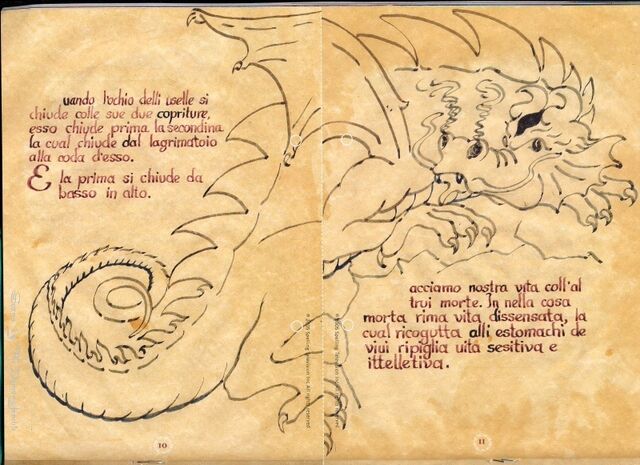 uando l'ochio delli uselle si
chiude colle sue due copriture,
esso chiude prima la secondina
la cual chiude dal lagrimatoio
alla coda d'esso.
E la prima si chiude da
basso in alto.
10
acciamo nostra vita coll'al
trui morte. In nella cosa
morta rima vita dissensata, la
cual ricogutta alli estomachi de
viui ripiglia uita sesitiva e
ittelletiva.
11